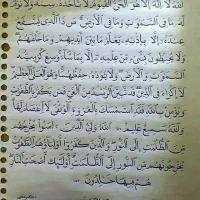 الله لا إله إلا هو الحي القيوم لا تأخذه سنة ولا نوم
له ما في السموت وما في الأرض من ذا الذي يشفع
عنده إلا بإذنه يعلم ما بين أيديهم وما خلفهم
ولا يحيطون بشيء من علمه إلا بما شاء وسع كرسيه
السموت والأرض ولا يؤده حفظهما وهو العلي العظيم
ويؤمن بالله فقد استمسك بالعروة الوثقى لا انفصام لها
والله سميع عليم الله ولي الذين آمنوا يخرجهم من
الظلمت إلى النور والذين كفروا أولياؤهم الطغوت
يخرجونهم من النور إلى الظلمت أولئك أصحب النار
هم فيها خلدون